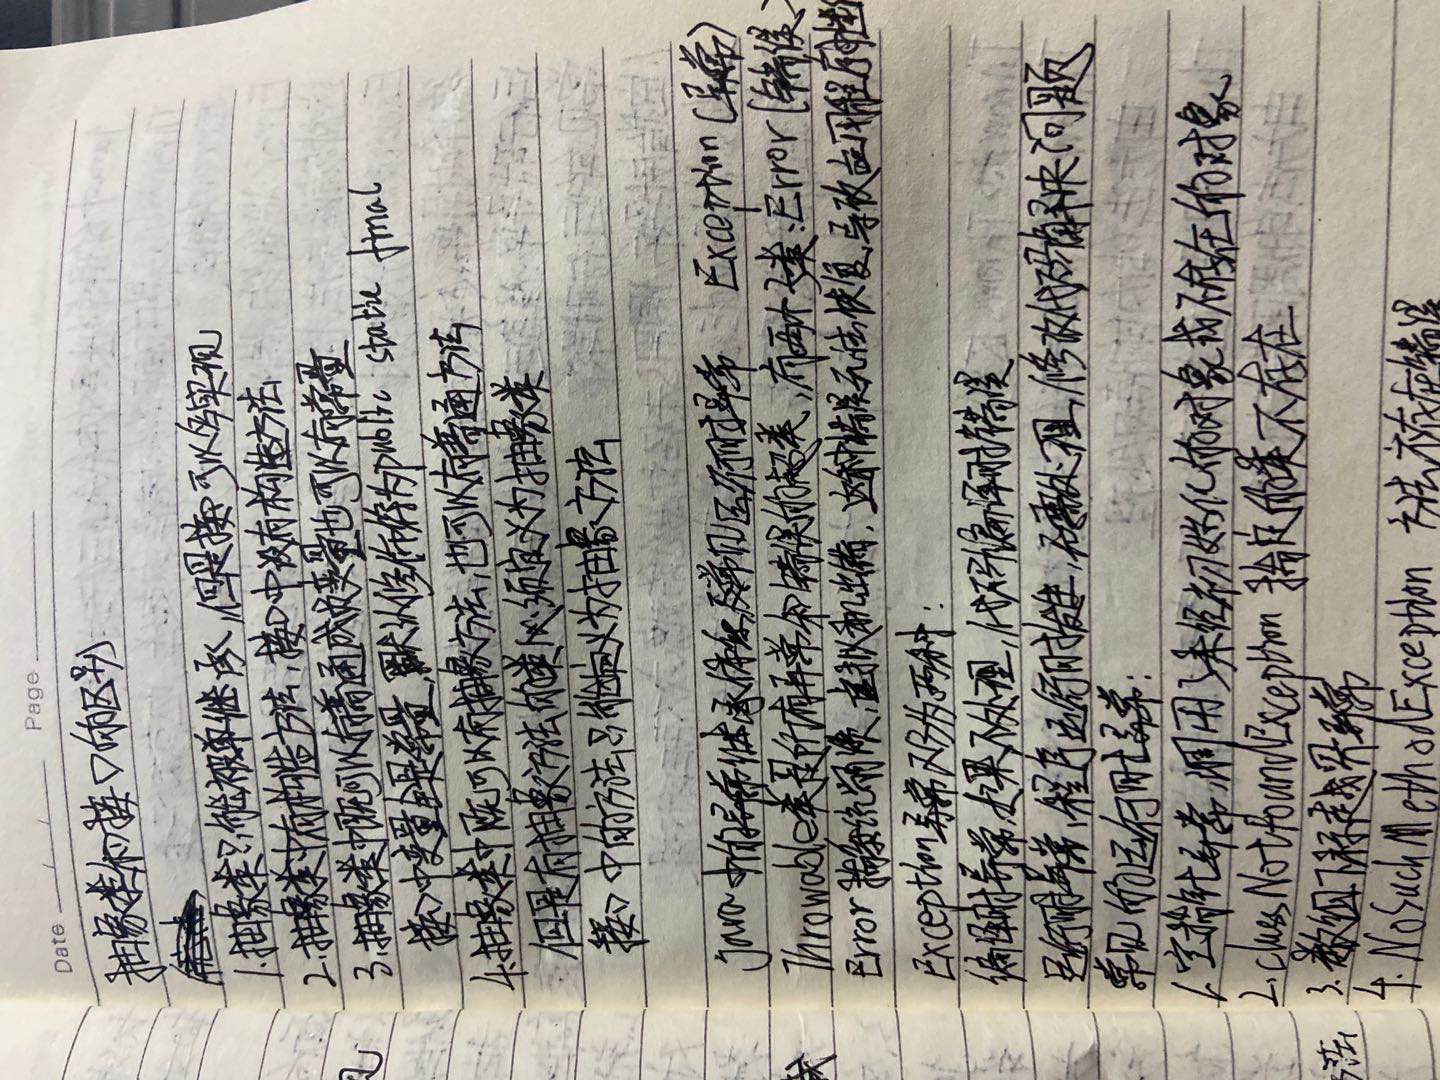 Date / / Page
抽象类和接口的区别
1.抽象类只能被单继承,但是接口可以多实现
2.抽象类中有构造方法,接口中没有构造方法
3.抽象类中既可以有普通成员变量也可以有常量
接口中变量全是常量,默认修饰符为public static final
4.抽象类中既可以有抽象方法,也可以有普通方法
但是有抽象方法的类必须定义为抽象类
接口中的方法只能定义为抽象方法
java中的异常继承体系及常见运行时异常 Exception(异常)
Throwable类是所有异常和错误的超类,有两个子类:Error(错误)
Error指系统崩溃,虚拟机出错,这种错误无法恢复,导致应用程序
Exception异常又分为两种:
编译时异常,如果不处理,代码编译时错误
运行时异常,程序运行时发生,无需处理,修改代码解决问题
常见的运行时异常:
1.空指针异常,调用了未经初始化的对象或不存在的对象
2.classNotFoundException 指定的类不存在
3.数组下标越界异常
4.NoSuchMethodException 方法不存在错误